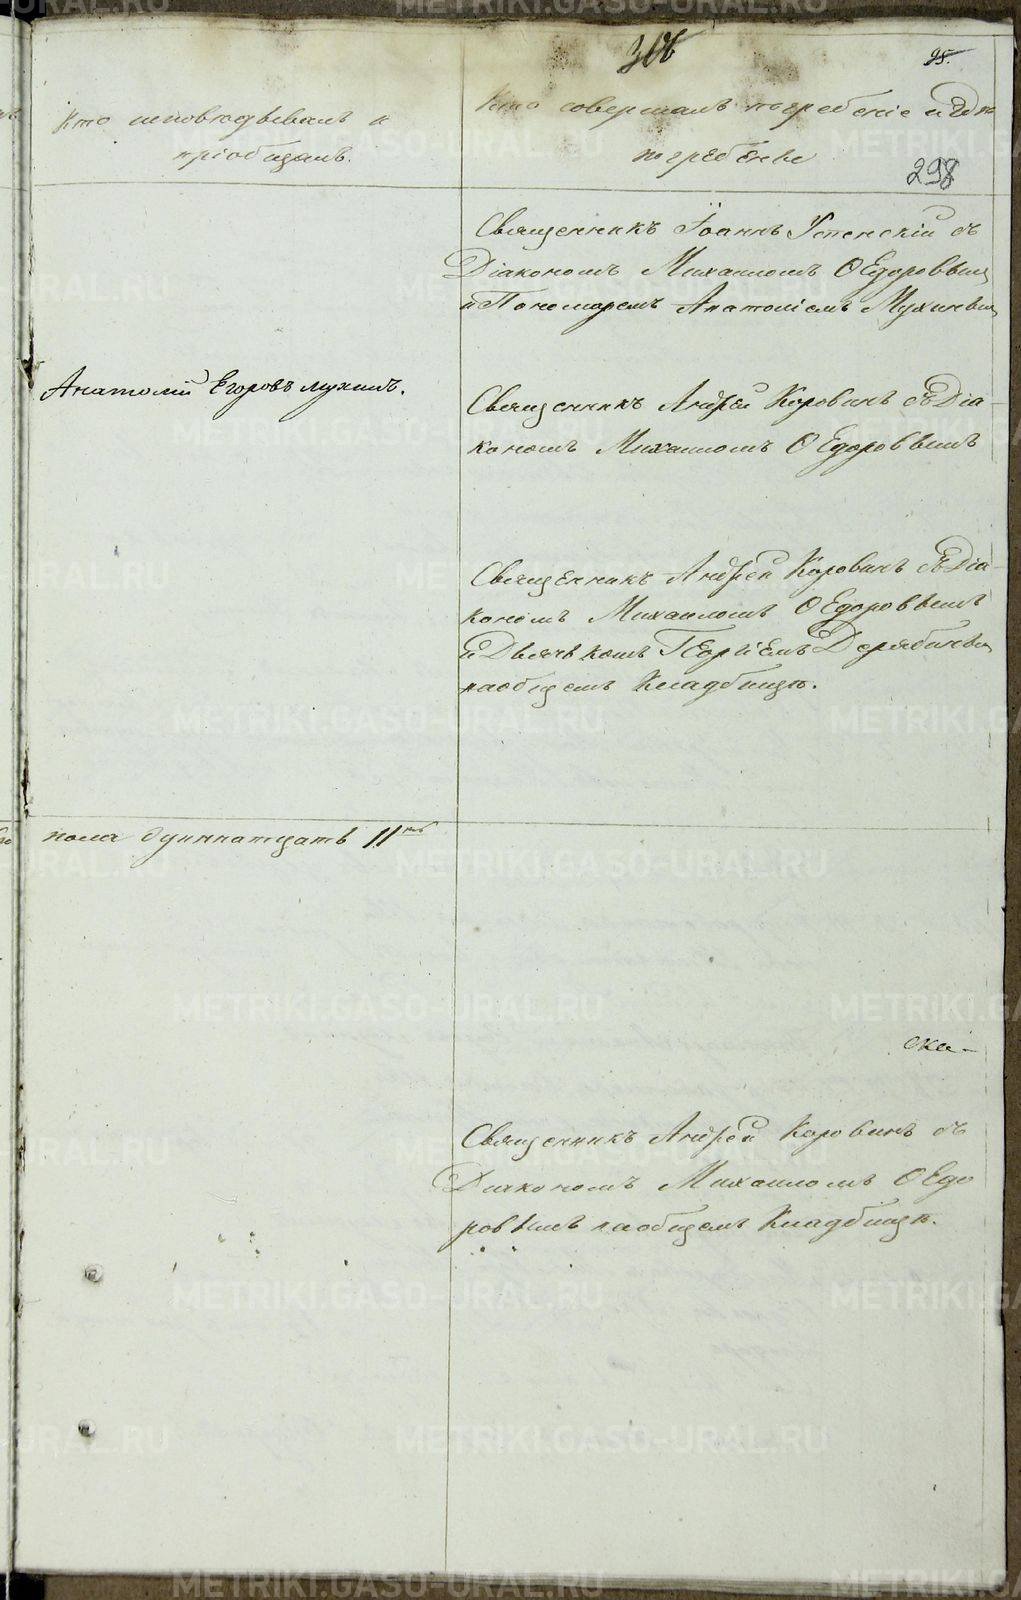 306
95.
Кто исповѣдывалъ и
пріобщалъ.
Кто совершалъ погребеніе и гдѣ
погребены
298
Священникъ Іоаннъ Успенскій съ
Діакономъ Михаиломъ Ѳедоровым
и Пономаремъ Анатоліемъ Мухинымъ
Анатолій Егоровъ Мухинъ.
Священникъ Андрей Коровинъ съ Діа-
кономъ Михаиломъ Ѳедоровымъ
Священникъ Андрей Коровинъ съ Діа-
кономъ Михаиломъ Ѳедоровымъ
и Дьячькомъ Георгіемъ Дерябинымъ
на общемъ Кладбищѣ.
пола одиннатцать 11ть
Священникъ Андрей Коровинъ съ
Діакономъ Михаиломъ Ѳедо
ровымъ на общемъ Кладбищѣ.
METRIKI.GASO-URAL.RU